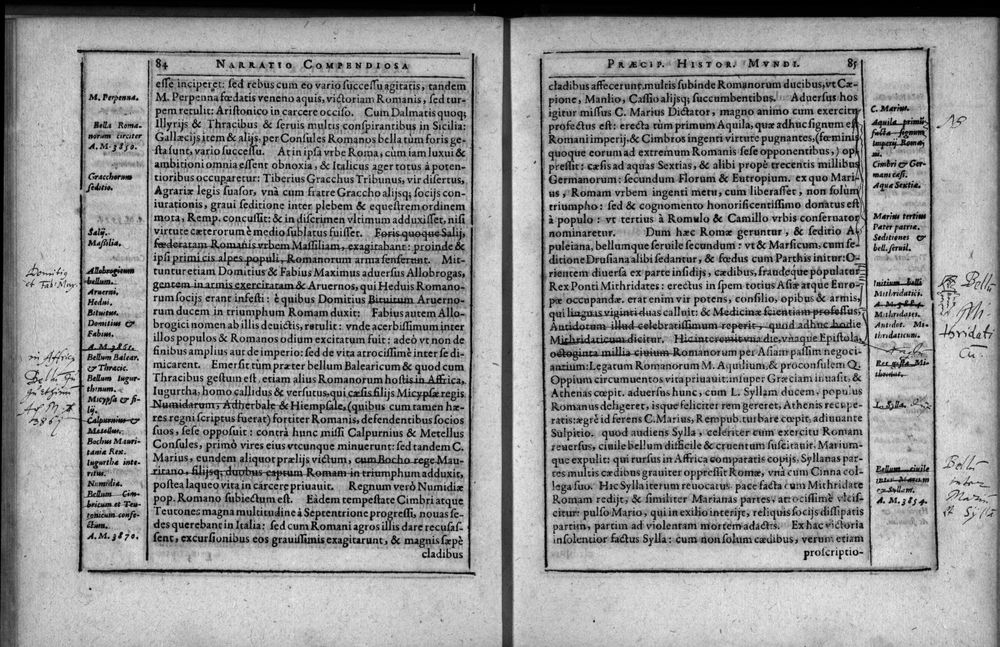 84 NARRATIO COMPENDIOSA
M. Perpenna.
Bella Roma-
norum circiter
A. M. 3850.
Gracchorum
seditio.
Salij.
Massilia.
Allobrogium
bellum.
Aruerni.
Hedui.
Bituitus.
Domitius &
Fabius.
A. M. 3852.
Bellum Balear.
& Thracic.
Bellum Iugur-
thinum.
Micypsa & fi-
lij.
Calpurnius &
Metellus.
Bochus Mauri-
tania Rex.
Iugurtha inte-
ritus.
Numidia.
Bellum Cim-
bricum et Teu-
tonicum confe-
ctum.
A. M. 3870.
esse inciperet: sed rebus cum eo vario successu agitatis, tandem
M. Perpenna fœdatis veneno aquis, victoriam Romanis, sed tur-
pem retulit: Aristonico in carcere occiso. Cum Dalmatis quoq;
Illyrijs & Thracibus & seruis multis conspirantibus in Sicilia:
Gallæcis item & alijs, per Consules Romanos bella tùm foris ge-
sta sunt, vario successu. At in ipsa vrbe Roma, cum iam luxui &
ambitioni omnia essent obnoxia, & Italicus ager totus à poten-
tioribus occuparetur: Tiberius Gracchus Tribunus, vir disertus,
Agrariæ legis suasor, vnà cum fratre Graccho alijsq; socijs con-
iurationis, graui seditione inter plebem & equestrem ordinem
mota, Remp. concussit: & in discrimen vltimum adduxisset, nisi
virtute cæterorum è medio sublatus fuisset. Foris quoque Salij,
fœderatam Romanis vrbem Massiliam, exagitabant: proinde &
ipsi primi cis alpes populi, Romanorum arma senserunt. Mit-
tuntur etiam Domitius & Fabius Maximus aduersus Allobrogas,
gentem in armis exercitatam & Aruernos, qui Heduis Romano-
rum socijs erant infesti: è quibus Domitius Bituitum Aruerno-
rum ducem in triumphum Romam duxit: Fabius autem Allo-
brogici nomen ab illis deuictis, retulit: vnde acerbissimum inter
illos populos & Romanos odium excitatum fuit: adeò vt non de
finibus amplius aut de imperio: sed de vita atrocissimè inter se di-
micarent. Emersit tùm præter bellum Balearicum & quod cum
Thracibus gestum est, etiam alius Romanorum hostis in Affrica,
Iugurtha: homo callidus & versutus, qui cæsis filijs Micypsæ regis
Numidarum, Adherbale & Hiempsale, (quibus cum tamen hæ-
res regni scriptus fuerat) fortiter Romanis, defendentibus socios
suos, sese opposuit: contrà hunc missi Calpurnius & Metellus
Consules, primò vires eius vtcunque minuerunt: sed tandem C.
Marius, eundem aliquot prælijs victum, cum Bocho rege Mau-
ritano, filijsq; duobus captum Romam in triumphum adduxit,
postea laqueo vita in carcere priuauit. Regnum verò Numidiæ
pop. Romano subiectum est. Eâdem tempestate Cimbri atque
Teutones magna multitudine à Septentrione progressi, nouas se-
des querebant in Italia: sed cum Romani agros illis dare recusas-
sent, excursionibus eos grauissimis exagitarunt, & magnis sæpè
cladibus
PRÆCIP. HISTOR. MVNDI. 85
cladibus affecerunt, multis subinde Romanorum ducibus, vt Cæ-
pione, Manlio, Cassio alijsq; succumbentibus. Aduersus hos
igitur missus C. Marius Dictator, magno animo cum exercitu
profectus est: erecta tùm primum Aquila, quæ adhuc signum est
Romani imperij, & Cimbros ingenti virtute pugnantes, (fœminis
quoque eorum ad extremum Romanis sese opponentibus,) op-
pressit: cæsis ad aquas Sextias, & alibi propè trecentis millibus
Germanorum: secundum Florum & Eutropium. ex quo Mari-
us, Romam vrbem ingenti metu, cum liberasset, non solùm
triumpho: sed & cognomento honorificentissimo donatus est
à populo: vt tertius à Romulo & Camillo vrbis conseruator
nominaretur. Dum hæc Romæ geruntur, & seditio A-
puleiana, bellumque seruile secundum: vt & Marsicum, cum se-
ditione Drusiana alibi sedantur, & fœdus cum Parthis initur: O-
rientem diuersa ex parte insidijs, cædibus, fraudeque populatur
Rex Ponti Mithridates: erectus in spem totius Asiæ atque Euro-
pæ occupandæ. erat enim vir potens, consilio, opibus & armis,
qui linguis viginti duas calluit: & Medicinæ scientiam professus,
Antidotum illud celebratissimum reperit, quod adhuc hodie
Mithridaticum dicitur. Hic interemit vna die, vnaque Epistola
octoginta millia ciuium Romanorum per Asiam passim negoci-
antium: Legatum Romanorum M. Aquilium, & proconsulem Q.
Oppium circumuentos vita priuauit: insuper Græciam inuasit, &
Athenas cœpit. aduersus hunc, cum L. Syllam ducem, populus
Romanus deligeret, isque feliciter rem gereret, Athenis recupe-
ratis: ægrè id ferens C. Marius, Rempub. turbare cœpit, adiuuante
Sulpitio. quod audiens Sylla, celeriter cum exercitu Romam
reuersus, ciuile bellum difficile & cruentum suscitauit. Marium-
que expulit: qui rursus in Affrica comparatis copijs, Syllanas par-
tes multis cædibus grauiter oppressit Romæ, vnà cum Cinna col-
lega suo. Hic Sylla iterum reuocatus pace facta cum Mithridate
Romam redijt, & similiter Marianas partes, atrocissimè vlcis-
citur: pulso Mario, qui in exilio interijt, reliquis socijs dissipatis
partim, partim ad violentam mortem adactis. Ex hac victoria
insolentior factus Sylla: cum non solum cædibus, verum etiam
proscriptio-
C. Marius.
Aquila primū
facta signum
Imperij Roma-
ni.
Cimbri & Ger-
mani cæsi.
Aquæ Sextiæ.
Marius tertius
Pater patriæ.
Seditiones &
bell. seruil.
Initium belli
Mithridatici.
Mithridates.
Antidot. Mi-
thridaticum.
L. Sylla.
Bellum ciuile
inter Marium
et Syllam.
A. M. 3854.